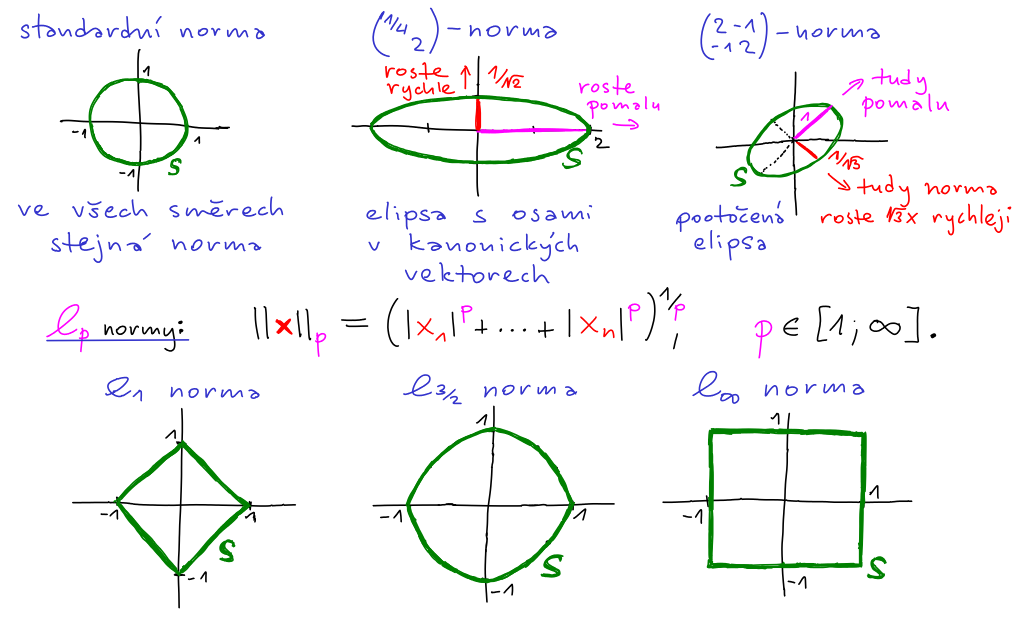 standardní norma
(1/4 2) - norma
(2 -1 -1 2) - norma
1
-1
1
-1
S
roste rychle ↑ 1/√2
roste pomalu →
2
S
tudy pomalu
1
1/√3
S
tudy norma
roste √3x rychleji
ve všech směrech
stejná norma
elipsa s osami
v kanonických
vektorech
pootočená
elipsa
lp normy: ||x||p = (|x1|^p + ... + |xn|^p)^1/p, p ∈ [1; ∞].
l1 norma
l3/2 norma
l∞ norma
1
-1
1
-1
S
1
-1
1
-1
S
1
-1
1
-1
S